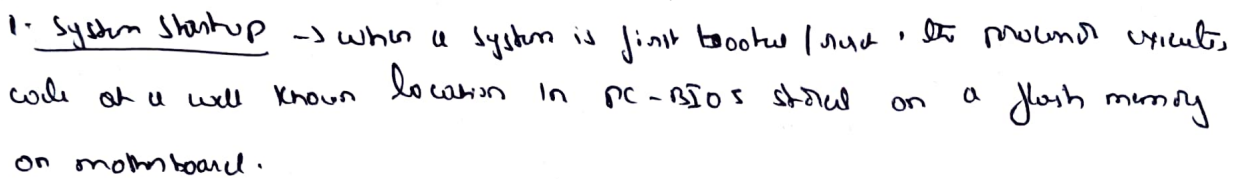 1. System Startup -> when a system is first booted / reset, the processor executes
code at a well known location in PC-BIOS stored on a flash memory
on motherboard.